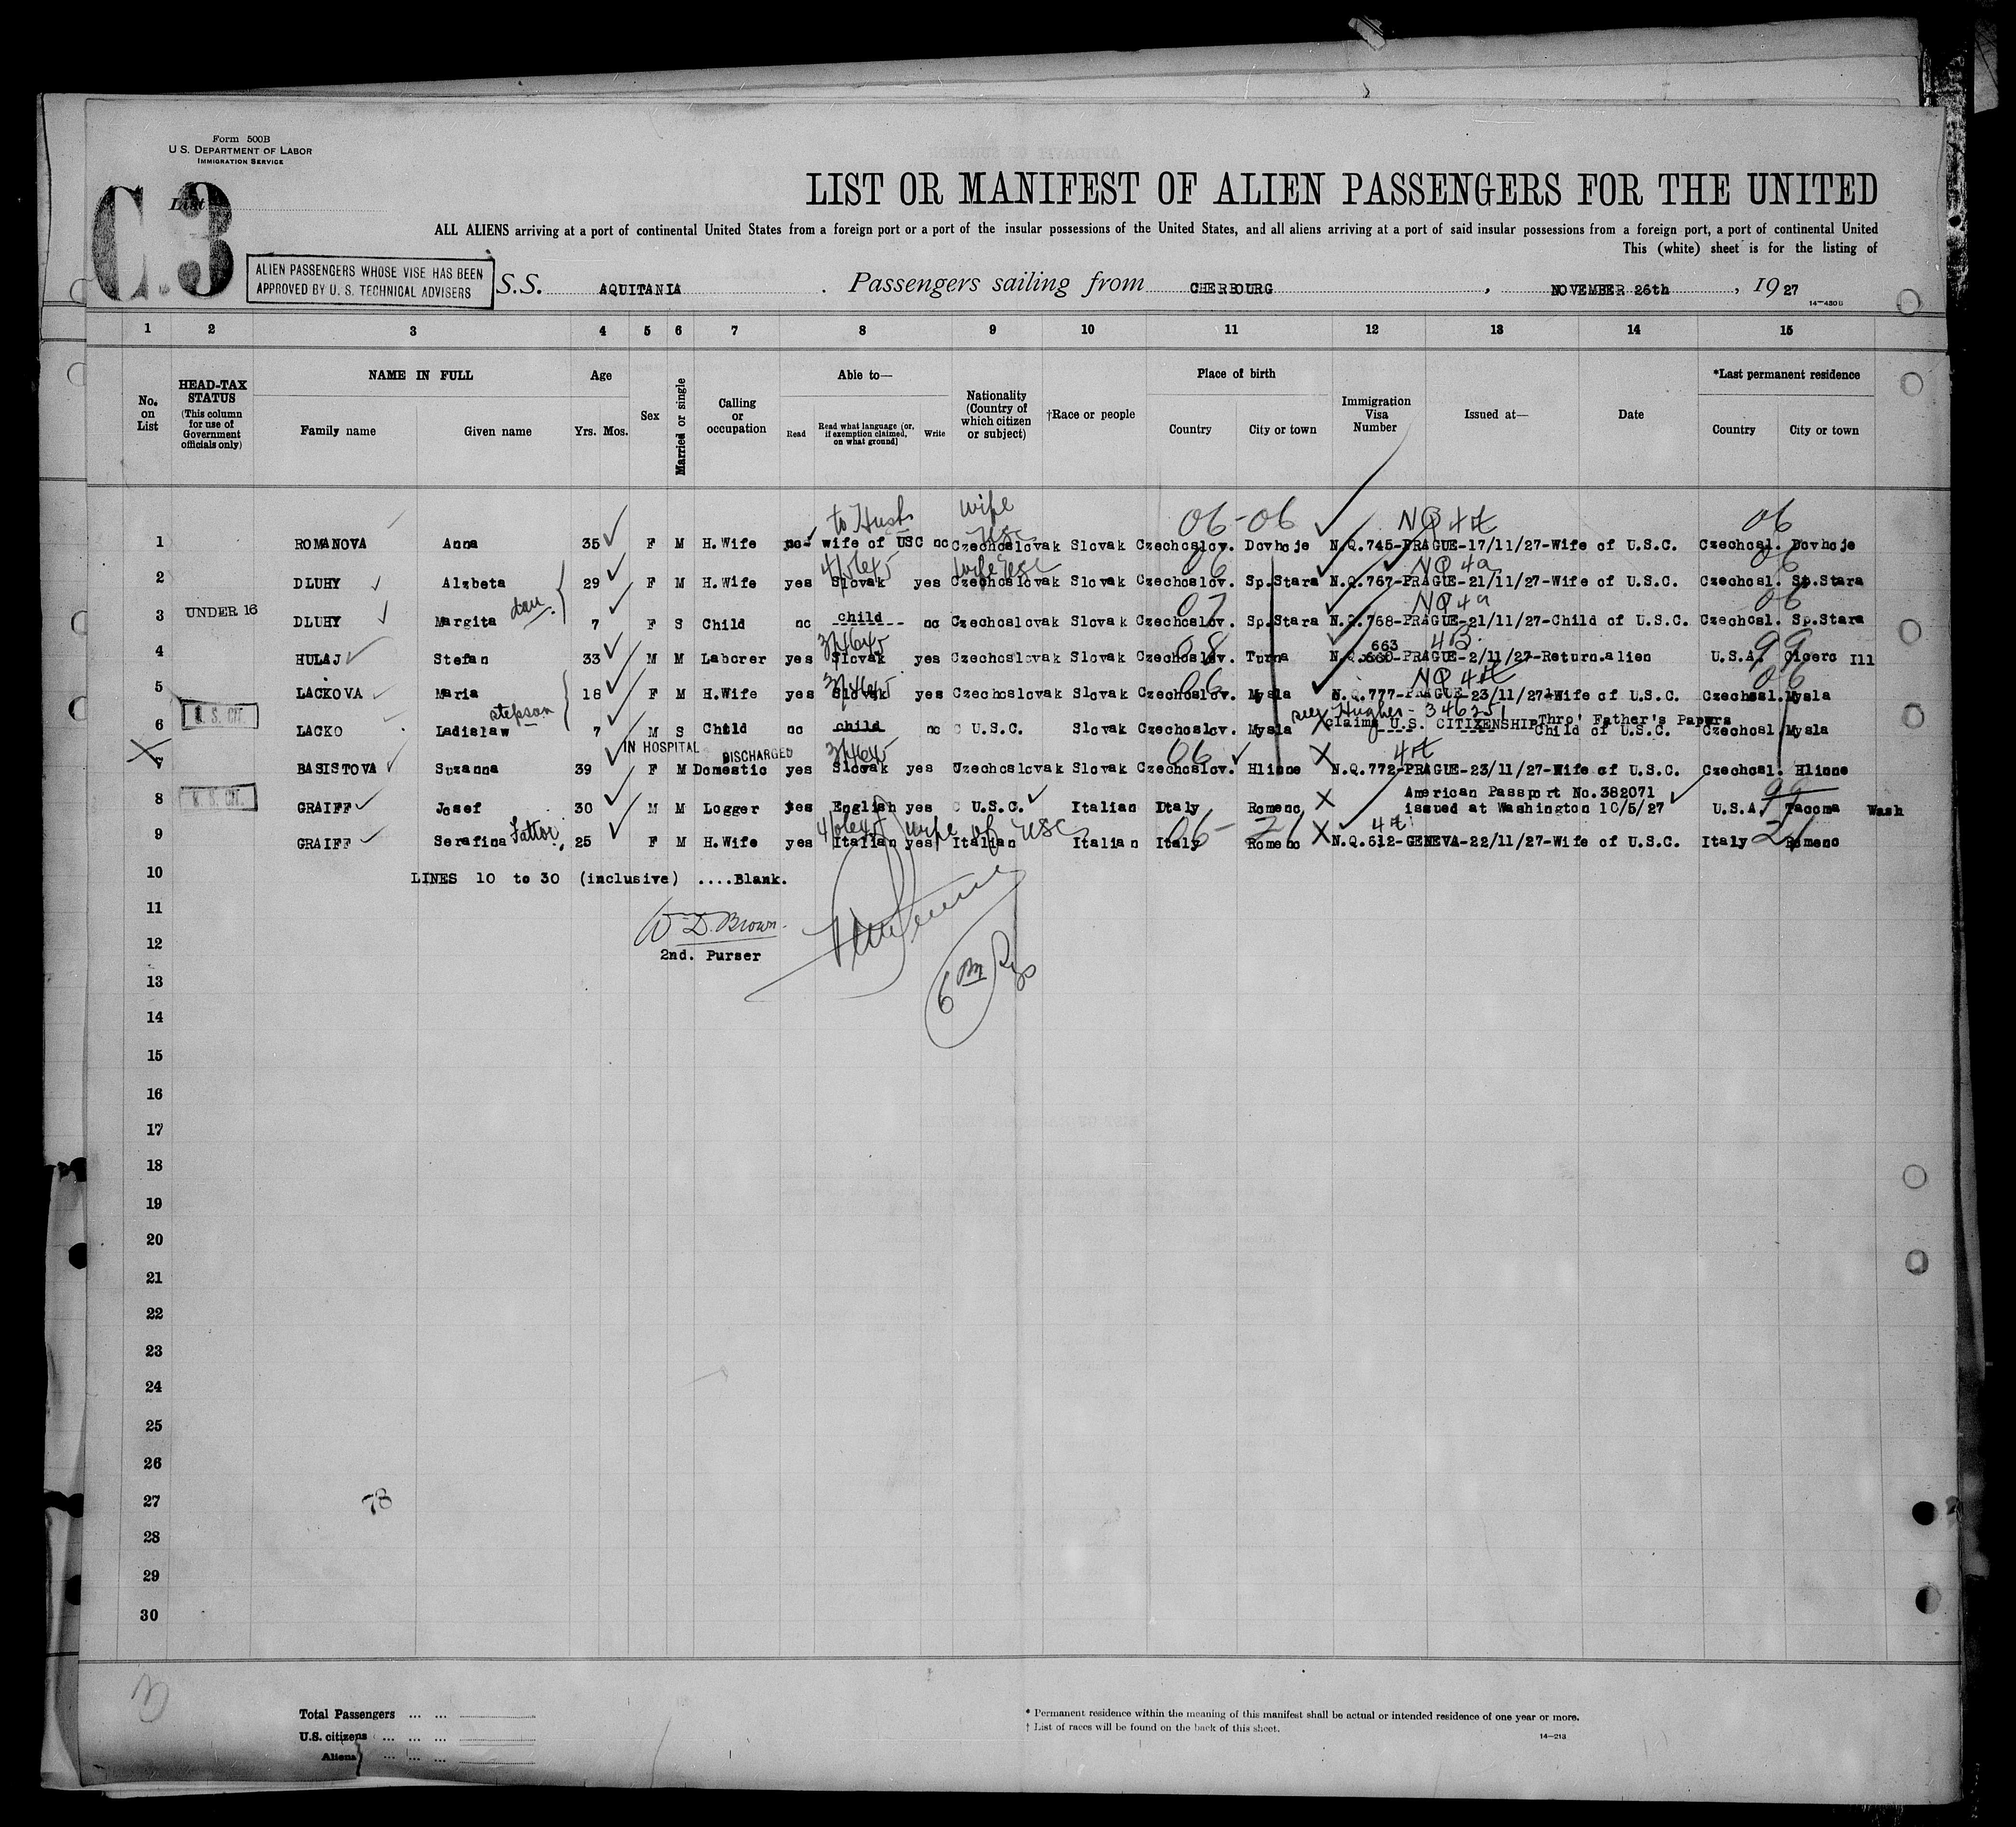 Form 500B
U. S. DEPARTMENT OF LABOR
IMMIGRATION SERVICE
List
C.3
LIST OR MANIFEST OF ALIEN PASSENGERS FOR THE UNITED
ALL ALIENS arriving at a port of continental United States from a foreign port or a port of the insular possessions of the United States, and all aliens arriving at a port of said insular possessions from a foreign port, a port of continental United
This (white) sheet is for the listing of
ALIEN PASSENGERS WHOSE VISE HAS BEEN
APPROVED BY U. S. TECHNICAL ADVISERS
S.S. AQUITANIA . Passengers sailing from CHERBOURG , NOVEMBER 26th , 1927
14—430B
1 2 3 4 5 6 7 8 9 10 11 12 13 14 15
No. on List
HEAD-TAX STATUS (This column for use of Government officials only)
NAME IN FULL
Family name Given name
Age
Yrs. Mos.
Sex
Married or single
Calling or occupation
Able to—
Read
Read what language (or, if exemption claimed, on what ground)
Write
Nationality (Country of which citizen or subject)
†Race or people
Place of birth
Country City or town
Immigration Visa Number
Issued at—
Date
*Last permanent residence
Country City or town
to Husb wife USC 06-06 NQ 4a 06
1 ROMANOVA Anna 35 F M H.Wife no wife of USC no Czechoslovak Slovak Czechoslov. Dovhoje N.Q.745-PRAGUE-17/11/27-Wife of U.S.C. Czechosl. Dovhoje
wife USC 06 NQ 4a 06
2 DLUHY Alzbeta 29 F M H.Wife yes Slovak yes Czechoslovak Slovak Czechoslov. Sp.Stara N.Q.767-PRAGUE-21/11/27-Wife of U.S.C. Czechosl. Sp.Stara
07 NQ 4a 06
3 UNDER 16 DLUHY Margita dau. 7 F S Child no child no Czechoslovak Slovak Czechoslov. Sp.Stara N.Q.768-PRAGUE-21/11/27-Child of U.S.C. Czechosl. Sp.Stara
08 663 4B 99
4 HULAJ Stefan 33 M M Laborer yes Slovak yes Czechoslovak Slovak Czechoslov. Turna N.Q.660-PRAGUE-2/11/27-Return.alien U.S.A. Cicero Ill
06 NQ 4a 06
5 LACKOVA Maria 18 F M H.Wife yes Slovak yes Czechoslovak Slovak Czechoslov. Mysla N.Q.777-PRAGUE-23/11/27-Wife of U.S.C. Czechosl. Mysla
Hughes - 346251
Claims U.S. CITIZENSHIP Thro' Father's Papers
6 U. S. CIT. LACKO Ladislaw stepson 7 M S Child no child no U.S.C. Slovak Czechoslov. Mysla Child of U.S.C. Czechosl Mysla
IN HOSPITAL DISCHARGED 06
7 BASISTOVA Suzanna 39 F M Domestic yes Slovak yes Czechoslovak Slovak Czechoslov. Hlinne N.Q.772-PRAGUE-23/11/27-Wife of U.S.C. Czechosl. Hlinne
American Passport No.382071 99
8 U. S. CIT. GRAIFF Josef 30 M M Logger yes English yes U.S.C. Italian Italy Romeno issued at Washington 10/5/27 U.S.A. Tacoma Wash
wife of USC 06-21
9 GRAIFF Serafina Fattor 25 F M H.Wife yes Italian yes Italian Italian Italy Romeno N.Q.612-GENEVA-22/11/27-Wife of U.S.C. Italy 21 Romeno
10 LINES 10 to 30 (inclusive) ....Blank.
11
W D. Brown
12
2nd. Purser
13
14
15
16
17
18
19
20
21
22
23
24
25
26
27
78
28
29
30
Total Passengers ... ...
U.S. citizens ... ... ...
Aliens ... ... ...
* Permanent residence within the meaning of this manifest shall be actual or intended residence of one year or more.
† List of races will be found on the back of this sheet.
14—213